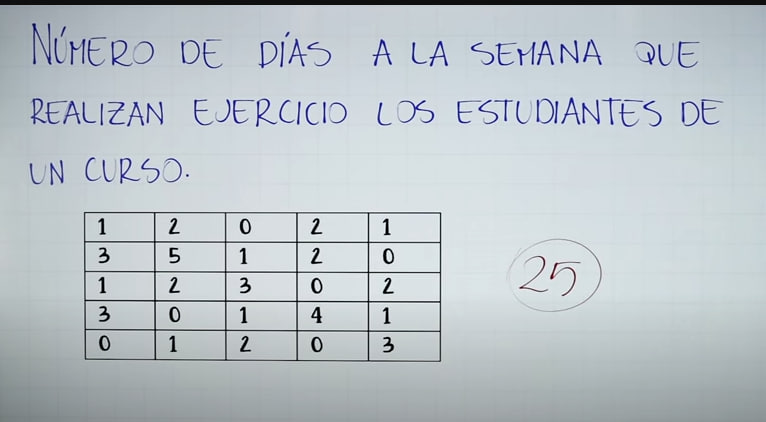 NÚMERO DE DÍAS A LA SEMANA QUE
REALIZAN EJERCICIO LOS ESTUDIANTES DE
UN CURSO.
1 2 0 2 1
3 5 1 2 0
1 2 3 0 2
25
3 0 1 4 1
0 1 2 0 3